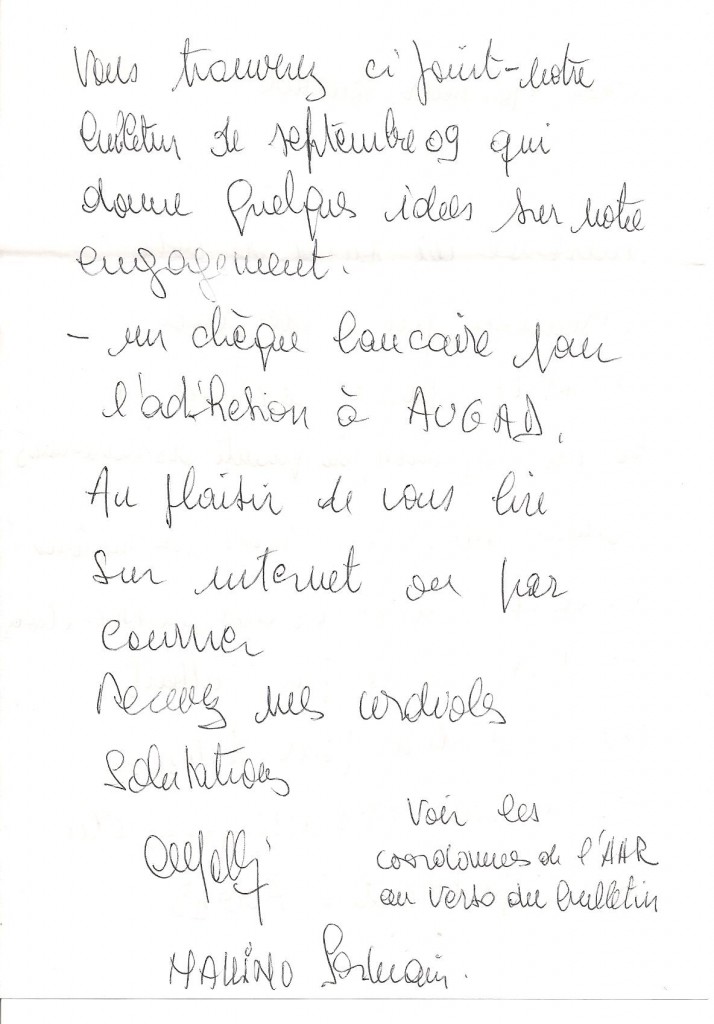 Vous trouverez ci joint - notre
bulletin de septembre 09 qui
donne quelques idées sur notre
engagement.
- un chèque bancaire pour
l'adhésion à AUGAD.
Au plaisir de vous lire
sur internet ou par
courrier
Recevez mes cordiales
salutations
Voir les
coordonnées de l'AAR
au verso du bulletin
Germain.